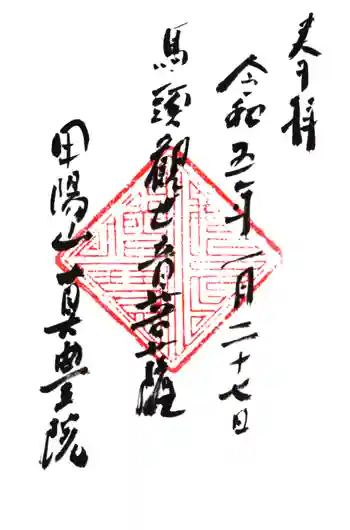 奉拝
令和五年一月二十七日
馬頭観世音菩薩
甲陽山真豊院